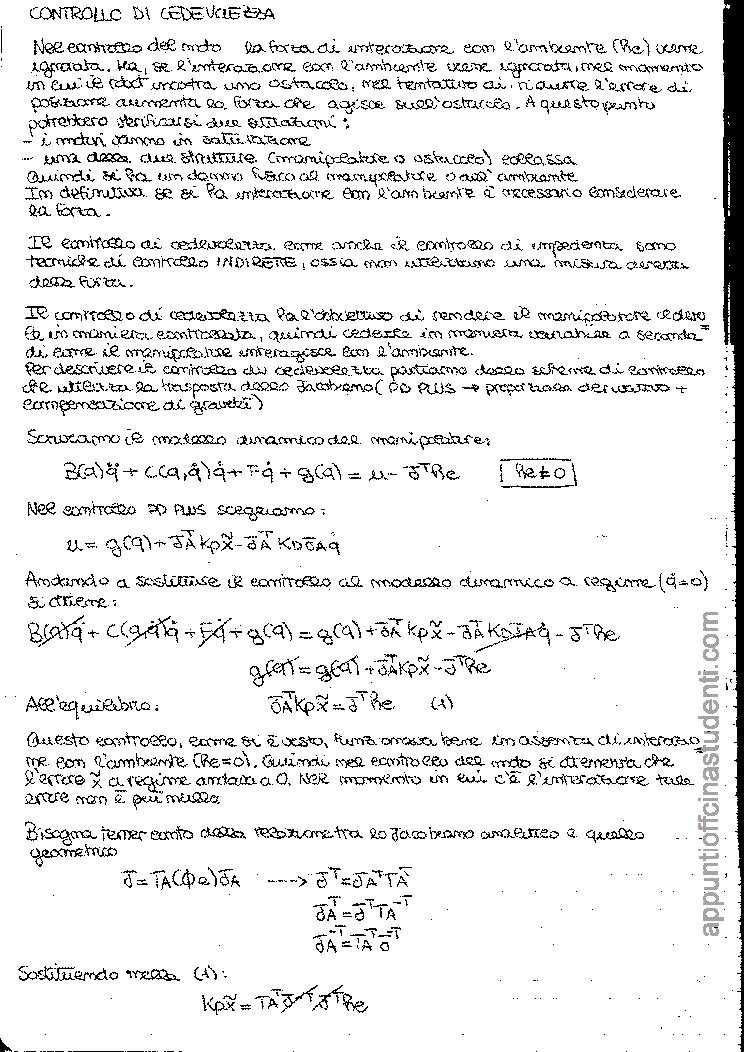 CONTROLLO DI CEDEVOLEZZA
Nel controllo del moto la forza di interazione con l'ambiente (he) viene
ignorata. Ma, se l'interazione con l'ambiente viene ignorata, nel momento
in cui il robot incontra uno ostacolo, nel tentativo di ridurre l'errore di
posizione aumenta la forza che agisce sull'ostacolo. A questo punto
potrebbero verificarsi due situazioni:
- i motori vanno in saturazione
- una delle due strutture (manipolatore o ostacolo) collassa
Quindi si ha un danno fisico al manipolatore o all'ambiente
In definitiva se si ha interazione con l'ambiente è necessario considerare
la forza.
Il controllo di cedevolezza come anche il controllo di impedenza sono
tecniche di controllo INDIRETTE, ossia non utilizzano una misura diretta
della forza.
Il controllo di cedevolezza ha l'obiettivo di rendere il manipolatore cedevo
le in maniera controllata, quindi cedente in maniera variabile a seconda
di come il manipolatore interagisce con l'ambiente.
Per descrivere il controllo di cedevolezza partiamo dallo schema di controllo
che utilizza la trasposta dello Jacobiano (PD PLUS → proporzionale derivativo +
compensazione di gravità)
Scriviamo il modello dinamico del manipolatore:
B(q)q̈ + C(q,q̇)q̇ + Fq̇ + g(q) = u - Jᵀhe he≠0
Nel controllo PD PLUS scegliamo:
u = g(q) + JAᵀKpx̃ - JAᵀKDJAq̇
Andando a sostituire il controllo al modello dinamico a regime (q̇=0)
si ottiene:
B(q)q̈ + C(q,q̇)q̇ + Fq̇ + g(q) = g(q) + JAᵀKpx̃ - JAᵀKDJAq̇ - Jᵀhe
g(q) = g(q) + JAᵀKpx̃ - Jᵀhe
All'equilibrio: JAᵀKpx̃ = Jᵀhe (1)
Questo controllo, come si è visto, funzionava bene in assenza di interazio
ne con l'ambiente (he=0). Quindi nel controllo del moto si dimostra che
l'errore x̃ a regime andava a 0. Nel momento in cui c'è l'interazione tale
errore non è più nullo
Bisogna tener conto della relazione tra lo Jacobiano analitico e quello
geometrico
J = TA(Φe)JA ----> Jᵀ = JAᵀTAᵀ
JAᵀ = JᵀTA⁻ᵀ
JA⁻ᵀ = TAᵀJ⁻ᵀ
Sostituendo nella (1):
Kpx̃ = TAᵀJ⁻ᵀJᵀhe
appuntiofficinastudenti.com